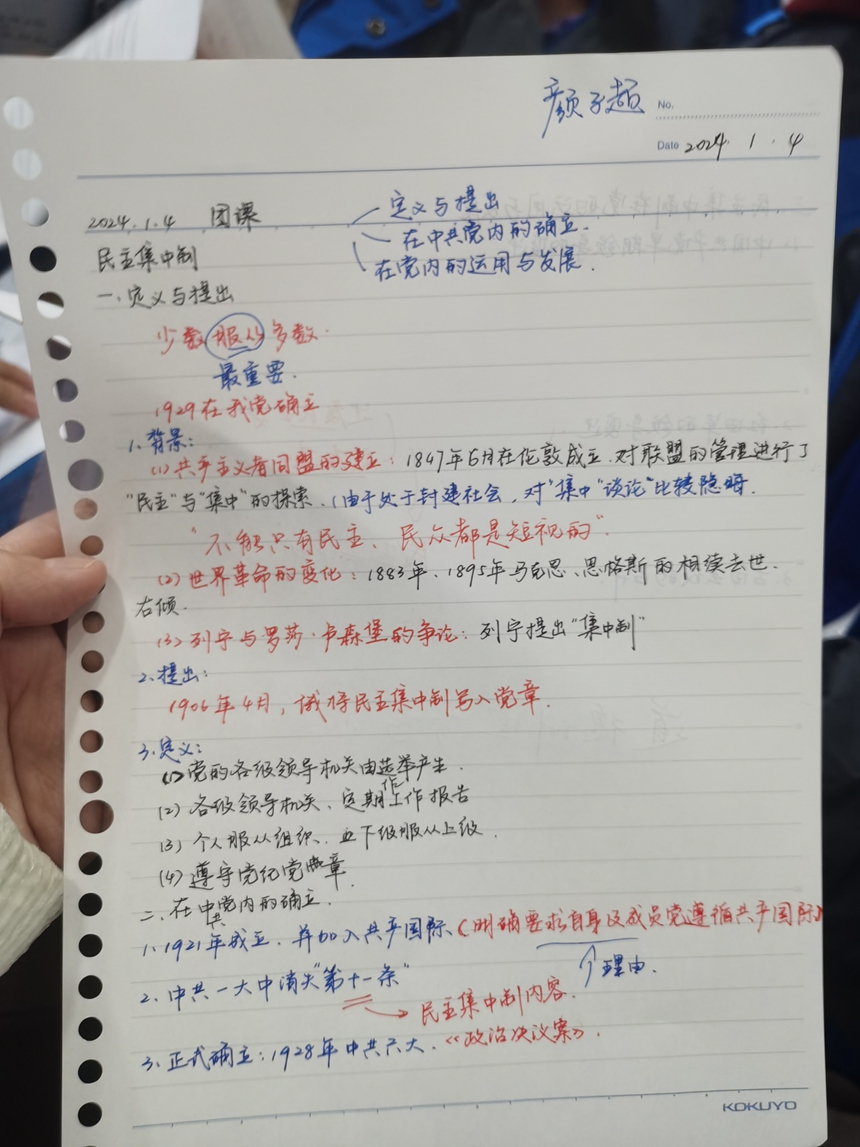 颜子超
No.
Date 2024. 1. 4
2024.1.4 团课
定义与提出
在中共党内的确立.
在党内的运用与发展.
民主集中制
一、定义与提出
少数服从多数.
最重要.
1929在我党确立
1.背景:
(1)共产主义者同盟的建立:1847年6月在伦敦成立.对联盟的管理进行了
"民主"与"集中"的探索.(由于处于封建社会,对"集中"谈论"比较隐晦.
"不能只有民主、民众都是短视的".
(2)世界革命的变化:1883年、1895年马克思、恩格斯的相续去世.
右倾.
(3)列宁与罗莎·卢森堡的争论:列宁提出"集中制"
2.提出:
1906年4月,俄将民主集中制写入党章.
3.定义:
(1)党的各级领导机关由选举产生.
(2)各级领导机关、定期作工作报告
(3)个人服从组织、下级服从上级.
(4)遵守党纪党章.
二、在中共党内的确立.
1.1921年成立.并加入共产国际(明确要求自身及成员党遵循共产国际)
理由.
2.中共一大中消失"第十一条"
民主集中制内容.
3.正式确立:1928年中共六大.《政治决议案》.
KOKUYO